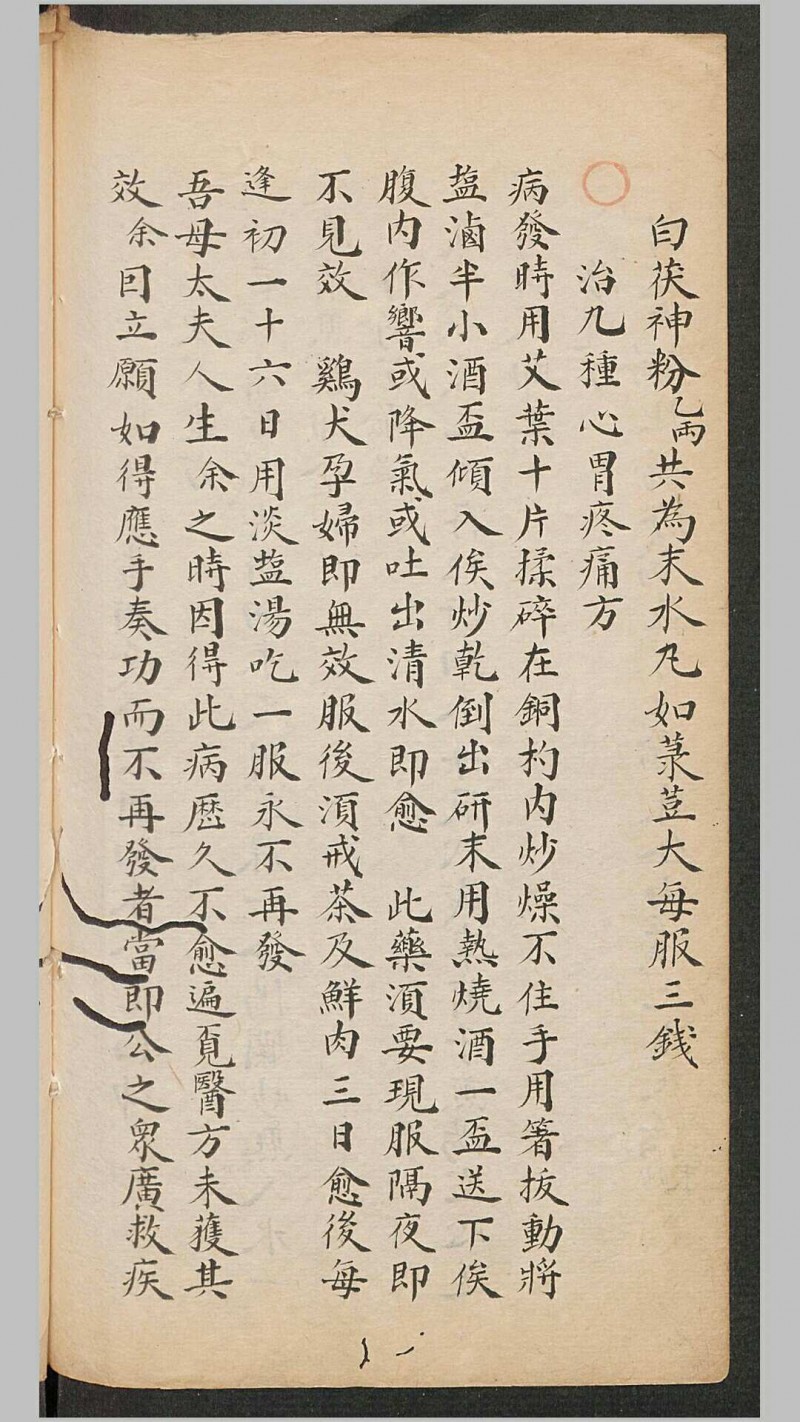 白茯神粉乙両共為末水凡如菉荳大每服三錢
治九種心胃疼痛方
病發時用艾葉十片揉碎在銅杓内炒燥不住手用箸抜動將
塩滷半小酒盃傾入俟炒乾倒出研末用熱燒酒一盃送下俟
腹内作響或降氣或吐出清水即愈　此藥湏要現服隔夜即
不見效　鷄犬孕婦即無效服後湏戒茶及鮮肉三日愈後每
逢初一十六日用淡塩湯吃一服永不再發
吾母太夫人生余之時因得此病歴久不愈遍覓醫方未獲其
效余因立願如得應手奏功而不再發者當即公之衆廣救疾